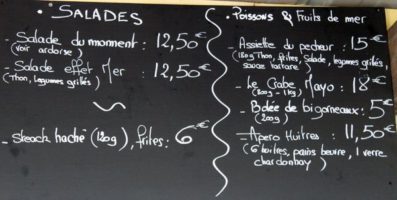 • SALADES
- Salade du moment : 12,50€
(voir ardoise)
- Salade effet Mer : 12,50€
(Thon, legumes grillés)
- Steack haché (120g), frites : 6€
• Poissons & Fruits de mer
- Assiette du pecheur : 15€
(180g Thon, frites, Salade, legumes grillés,
sauce tartare)
- Le Crabe Mayo : 18€
(800g - 1kg)
- Bolée de bigorneaux : 5€
(200g)
- Apéro Huitres : 11,50€
(6 huitres, pains beurre, 1 verre
chardonnay)